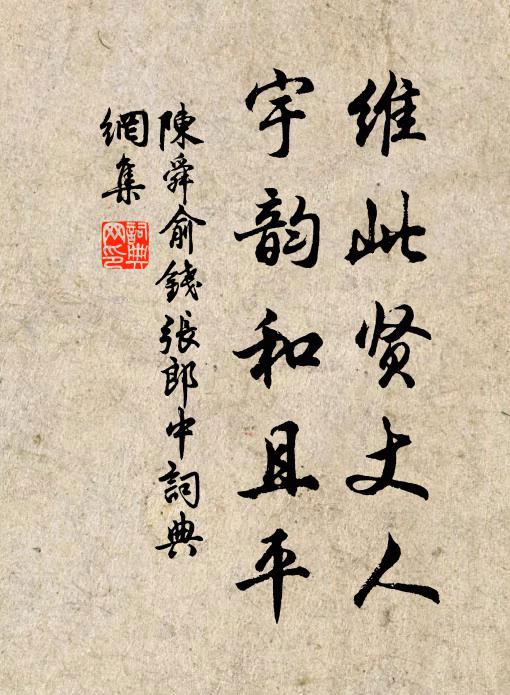 维此贤丈人
宇韵和且平
陳舜俞錢張郎中詞典
網集
詞典
网印